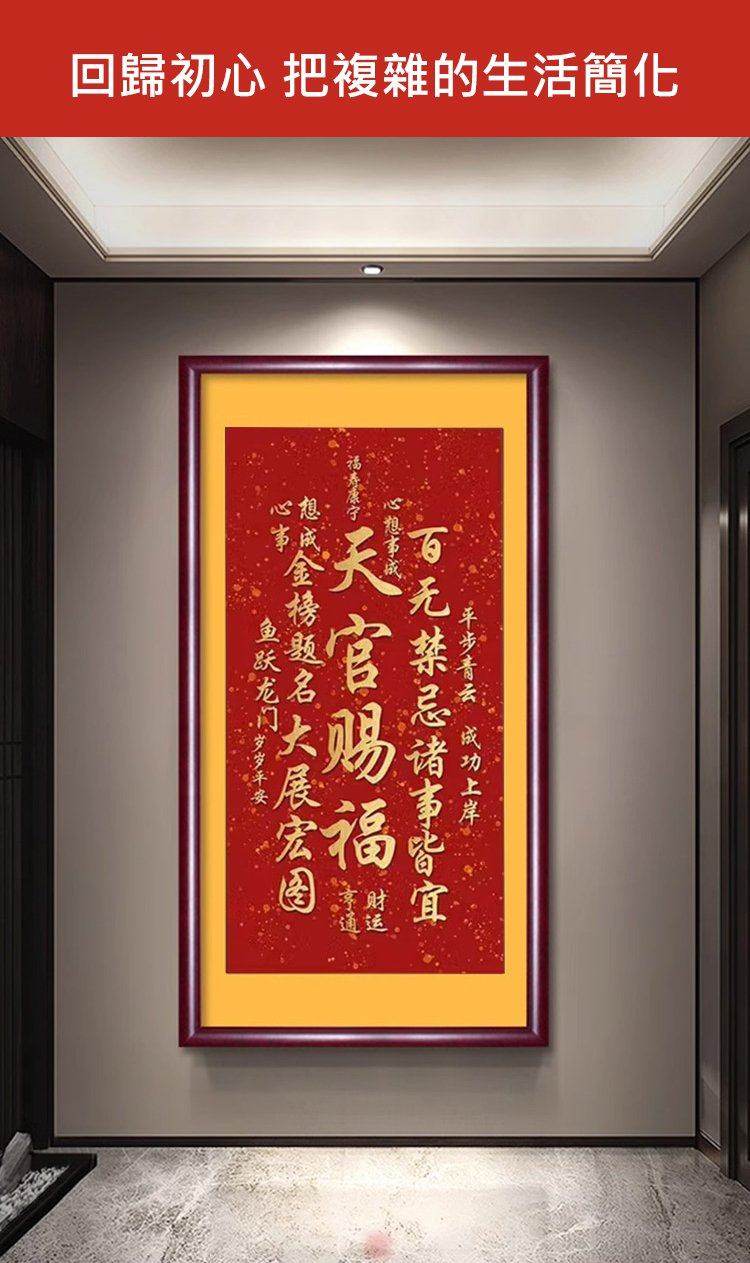 回歸初心 把複雜的生活簡化
平步青云 成功上岸
百无禁忌诸事皆宜
心想事成
福寿康宁
天官赐福
财运
亨通
想成
心事
金榜题名大展宏图
鱼跃龙门岁岁平安